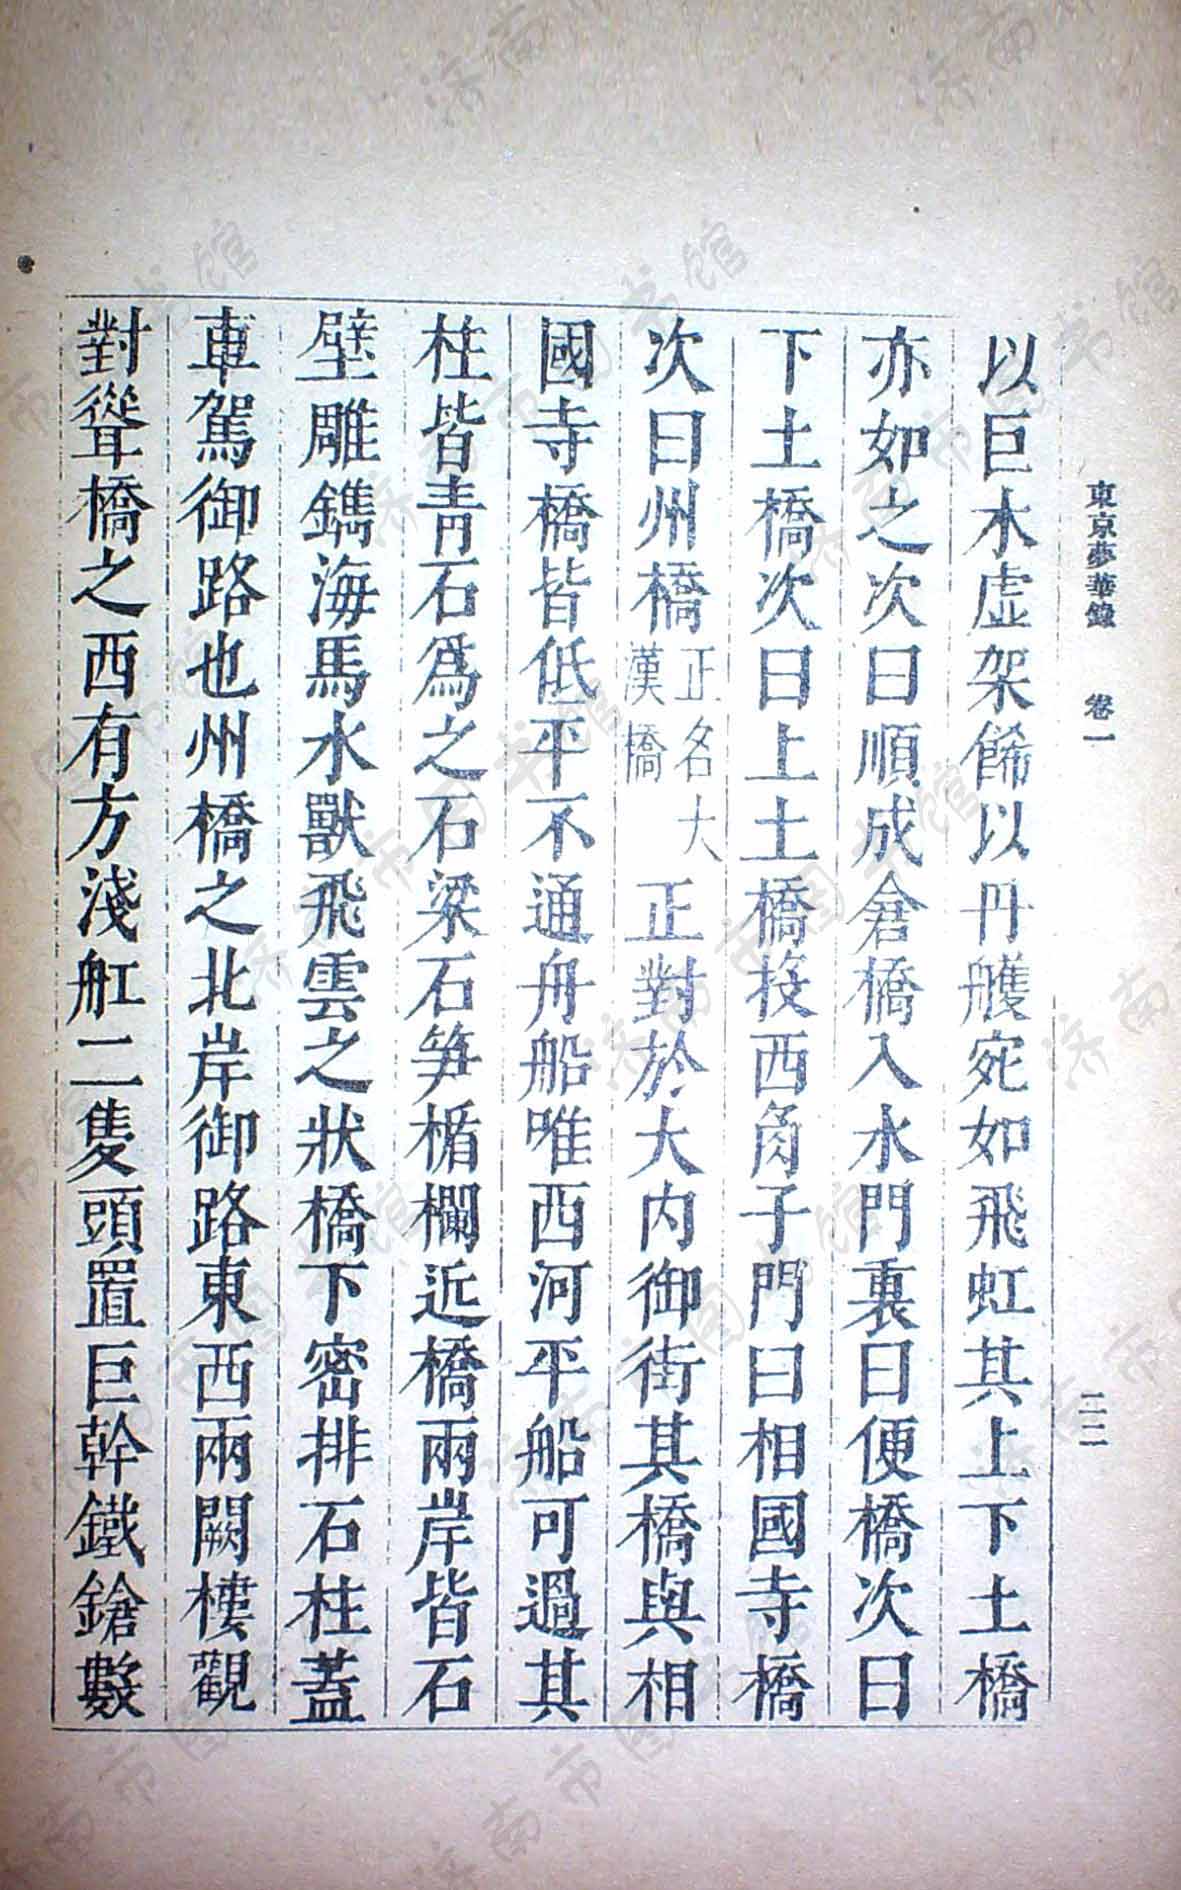 東京夢華錄 卷一 二二
以巨木虛架餙以丹雘宛如飛虹其上下土橋
亦如之次曰順成倉橋入水門裏曰便橋次曰
下土橋次曰上土橋投西角子門曰相國寺橋
次曰州橋正名大漢橋正對於大內御街其橋與相
國寺橋皆低平不通舟船唯西河平船可過其
柱皆青石爲之石梁石笋楯欄近橋兩岸皆石
壁雕鐫海馬水獸飛雲之狀橋下密排石柱蓋
車駕御路也州橋之北岸御路東西兩闕樓觀
對聳橋之西有方淺舡二隻頭置巨幹鐵鎗數
济南市图书馆